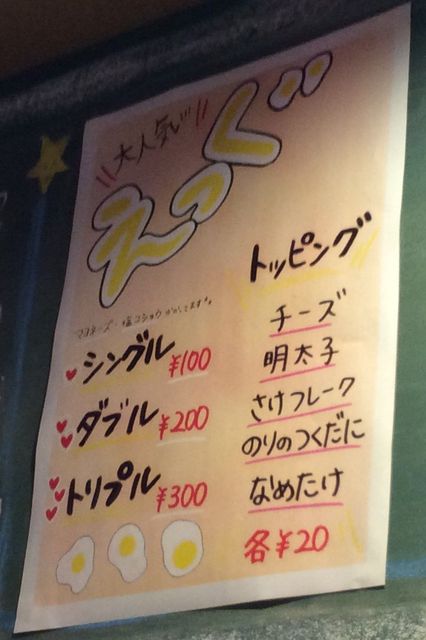 大人気!!
えっぐ
マヨネーズ・塩コショウかかってます。
シングル ¥100
ダブル ¥200
トリプル ¥300
トッピング
チーズ
明太子
さけフレーク
のりのつくだに
なめたけ
各¥20